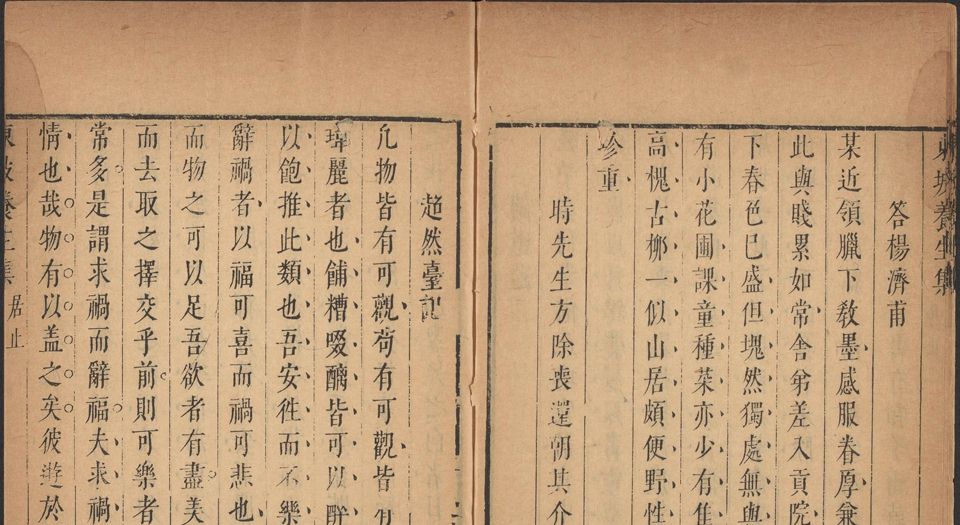 東坡養生集
答楊濟甫
某近領臘下教墨感服眷厚兼
此與賤累如常舍弟差入貢院
下春色已盛但塊然獨處無與
有小花圃課童種菜亦少有佳
高槐古栁一似山居頗便野性
珍重
時先生方除喪還朝其介
超然臺記
凡物皆有可觀苟有可觀皆有
瑋麗者也餔糟啜醨皆可以醉
以飽推此類也吾安徃而不樂
辭禍者以福可喜而禍可悲也
而物之可以足吾欲者有盡美
而去取之擇交乎前則可樂者
常多是謂求禍而辭福夫求禍
情也哉物有以盖之矣彼遊於
東坡養生集 居止